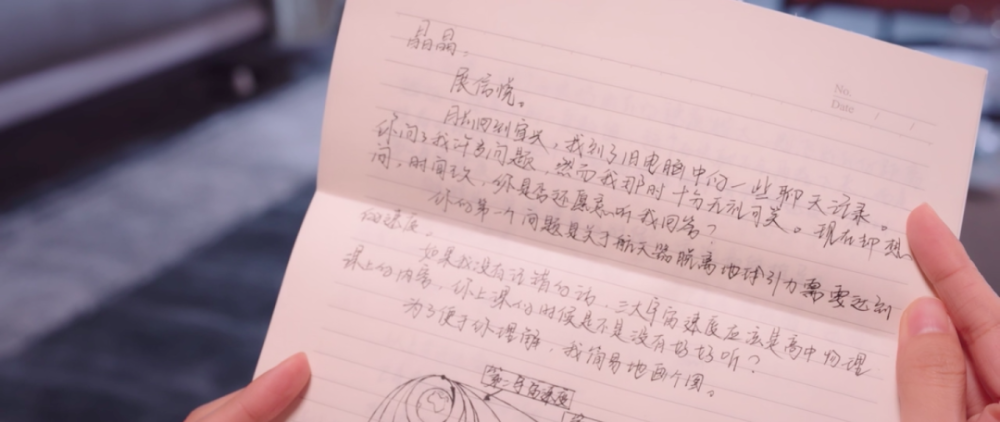 晶晶，
No.
Date / /
展信悦。
月初回到宿舍，我到了旧电脑中的一些聊天记录。
你问了我许多问题，然而我那时十分无礼可笑。现在却想
问，时间久，你是否还愿意听我回答？
你的第一个问题是关于航天器脱离地球引力需要达到
的速度。
如果我没有记错的话，三大宇宙速度应该是高中物理
课上的内容，你上课的时候是不是没有好好听？
为了便于你理解，我简易地画个图。
第二宇宙速度